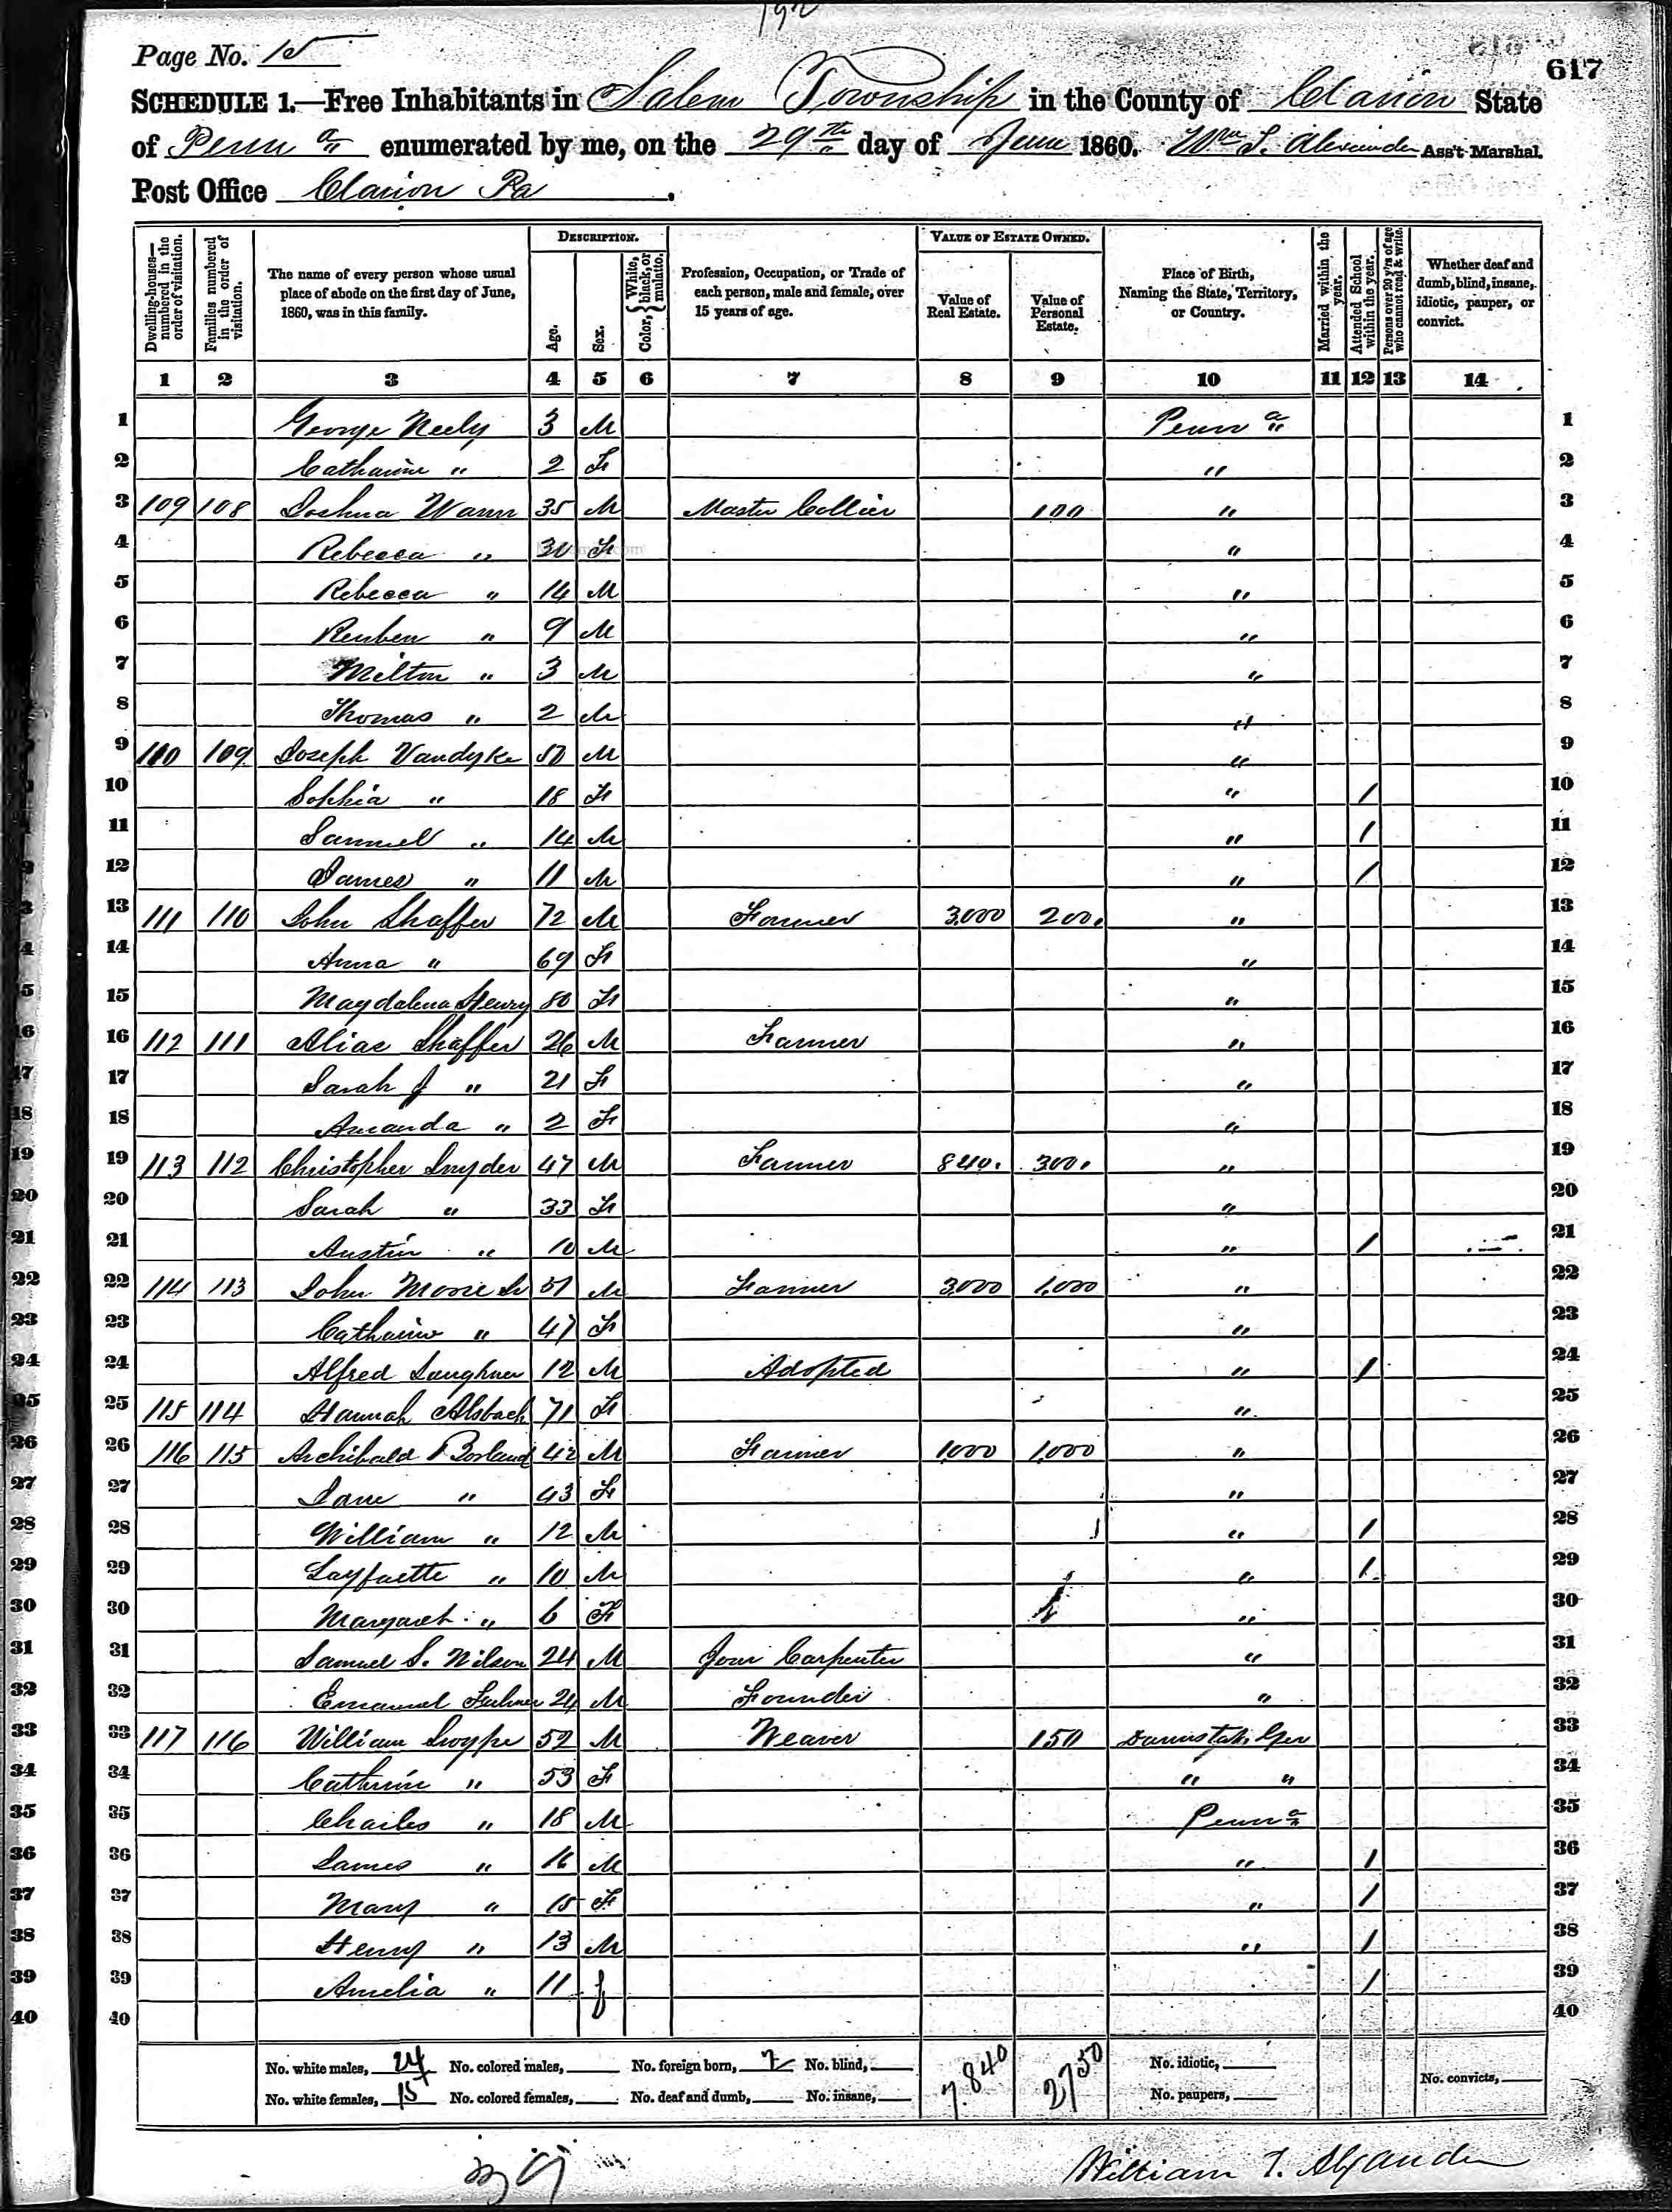 192
Page No. 15
617
SCHEDULE 1.—Free Inhabitants in Salem Township in the County of Clarion State
of Penn a enumerated by me, on the 29th day of June 1860. Wm. T. Alexander Ass't Marshal.
Post Office Clarion Pa.
Dwelling-houses—numbered in the order of visitation.
Families numbered in the order of visitation.
The name of every person whose usual place of abode on the first day of June, 1860, was in this family.
DESCRIPTION.
Age.
Sex.
Color, White, black, or mulatto.
Profession, Occupation, or Trade of each person, male and female, over 15 years of age.
VALUE OF ESTATE OWNED.
Value of Real Estate.
Value of Personal Estate.
Place of Birth, Naming the State, Territory, or Country.
Married within the year.
Attended School within the year.
Persons over 20 y'rs of age who cannot read & write.
Whether deaf and dumb, blind, insane, idiotic, pauper, or convict.
1 2 3 4 5 6 7 8 9 10 11 12 13 14
1 George Neely 3 M Penn a 1
2 Catharine " 2 F " 2
3 109 108 Joshua Wann 35 M Master Collier 100 " 3
4 Rebecca " 30 F " 4
5 Rebecca " 14 M " 5
6 Reuben " 9 M " 6
7 Milton " 3 M " 7
8 Thomas " 2 M " 8
9 110 109 Joseph Vandyke 50 M " 9
10 Sophia " 18 F " / 10
11 Samuel " 14 M " / 11
12 James " 11 M " / 12
13 111 110 John Shaffer 72 M Farmer 3,000 200. " 13
14 Anna " 69 F " 14
15 Magdalena Henry 80 F " 15
16 112 111 Alias Shaffer 26 M Farmer " 16
17 Sarah J " 21 F " 17
18 Amanda " 2 F " 18
19 113 112 Christopher Snyder 47 M Farmer 840. 300. " 19
20 Sarah " 33 F " 20
21 Austin " 10 M " / 21
22 114 113 John Moore Sr 51 M Farmer 3,000 1,000 " 22
23 Catharine " 47 F " 23
24 Alfred Laughner 12 M Adopted " / 24
25 115 114 Hannah Alsbach 71 F " 25
26 116 115 Archibald Borland 42 M Farmer 1,000 1,000 " 26
27 Jane " 43 F " 27
28 William " 12 M " / 28
29 Layfaette " 10 M " / 29
30 Margaret " 6 F " 30
31 Samuel S. Wilson 24 M Jour Carpenter " 31
32 Emanuel 24 M Founder " 32
33 117 116 William Swype 52 M Weaver 150 Darmstatt Ger 33
34 Cathrine " 53 F " " 34
35 Charles " 18 M Penn a 35
36 James " 16 M " / 36
37 Mary " 15 F " / 37
38 Henry " 13 M " / 38
39 Amelia " 11 f / 39
40 40
No. white males, 24 No. colored males, No. foreign born, 2 No. blind, 7.840 2750 No. idiotic,
No. white females, 15 No. colored females, No. deaf and dumb, No. insane, No. paupers, No. convicts,
39
William T. Alexander